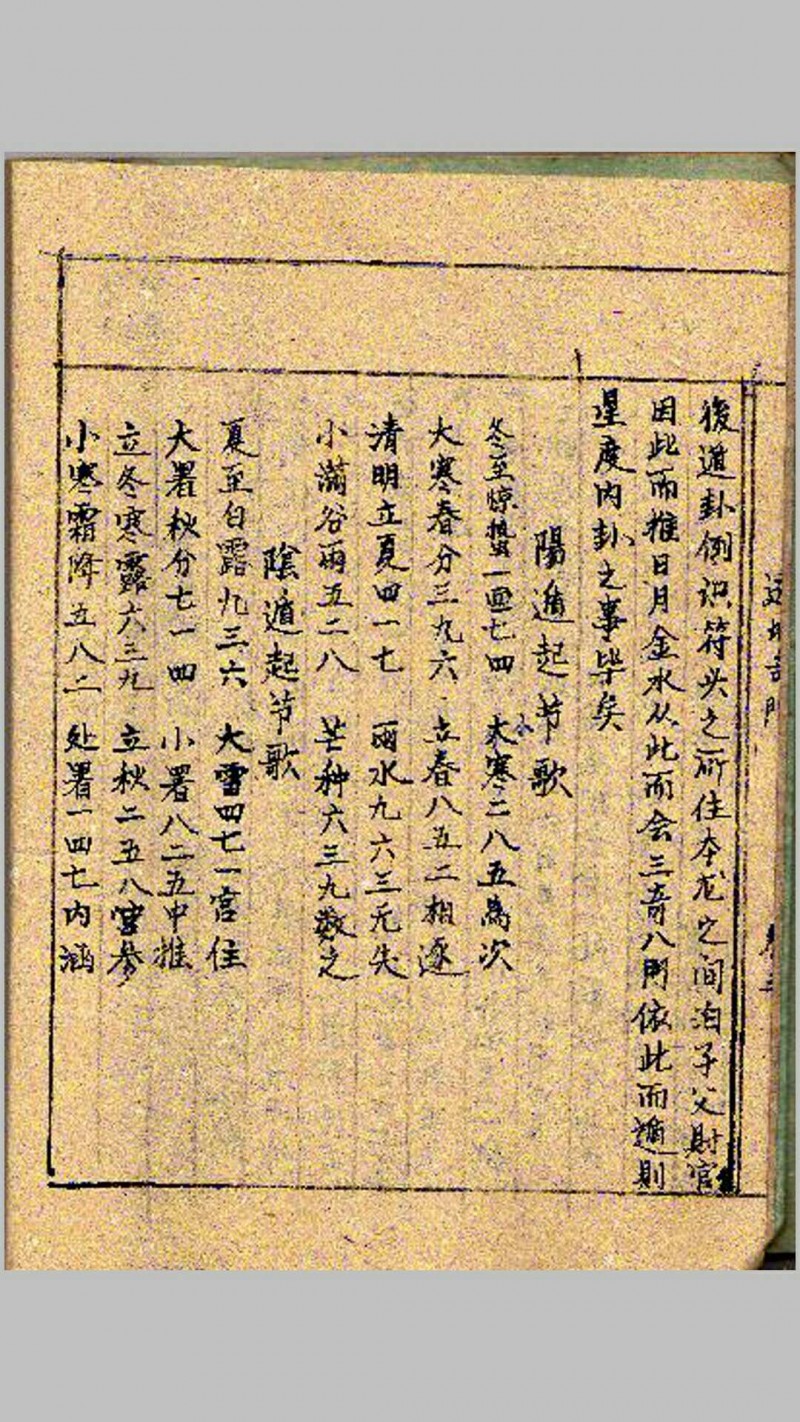 後遁卦例识符头之所住本龙之间泊子父財官
因此而推日月金水从此而会三奇八門依此而遁則
星度内卦之事毕矣
陽遁起节歌
冬至惊蛰一囬七四 小寒二八五為次
大寒春分三九六 立春八五二相逐
清明立夏四一七 雨水九六三无失
小滿谷雨五二八 芒种六三九数之
陰遁起节歌
夏至白露九三六 大雪四七一宫住
大署秋分七一四 小署八二五中推
立冬寒露六三九 立秋二五八宫参
小寒霜降五八二 处署一四七内涵